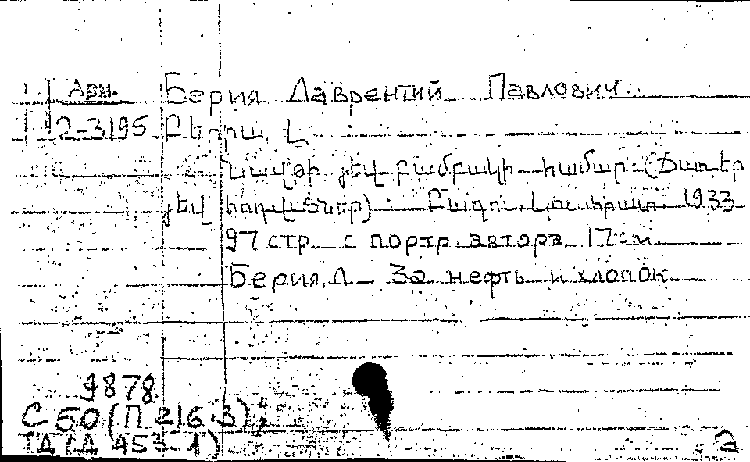 Арм. Берия Лаврентий Павлович.
2-3195 Բերիա, Լ
Նավթի յեվ բամբակի համար (Ճառեր
յեվ հոդվածներ) Բագու 1933
97 стр. с портр. автора 17 см
Берия, Л – За нефть и хлопок
9878
С 50 (П 216.3);